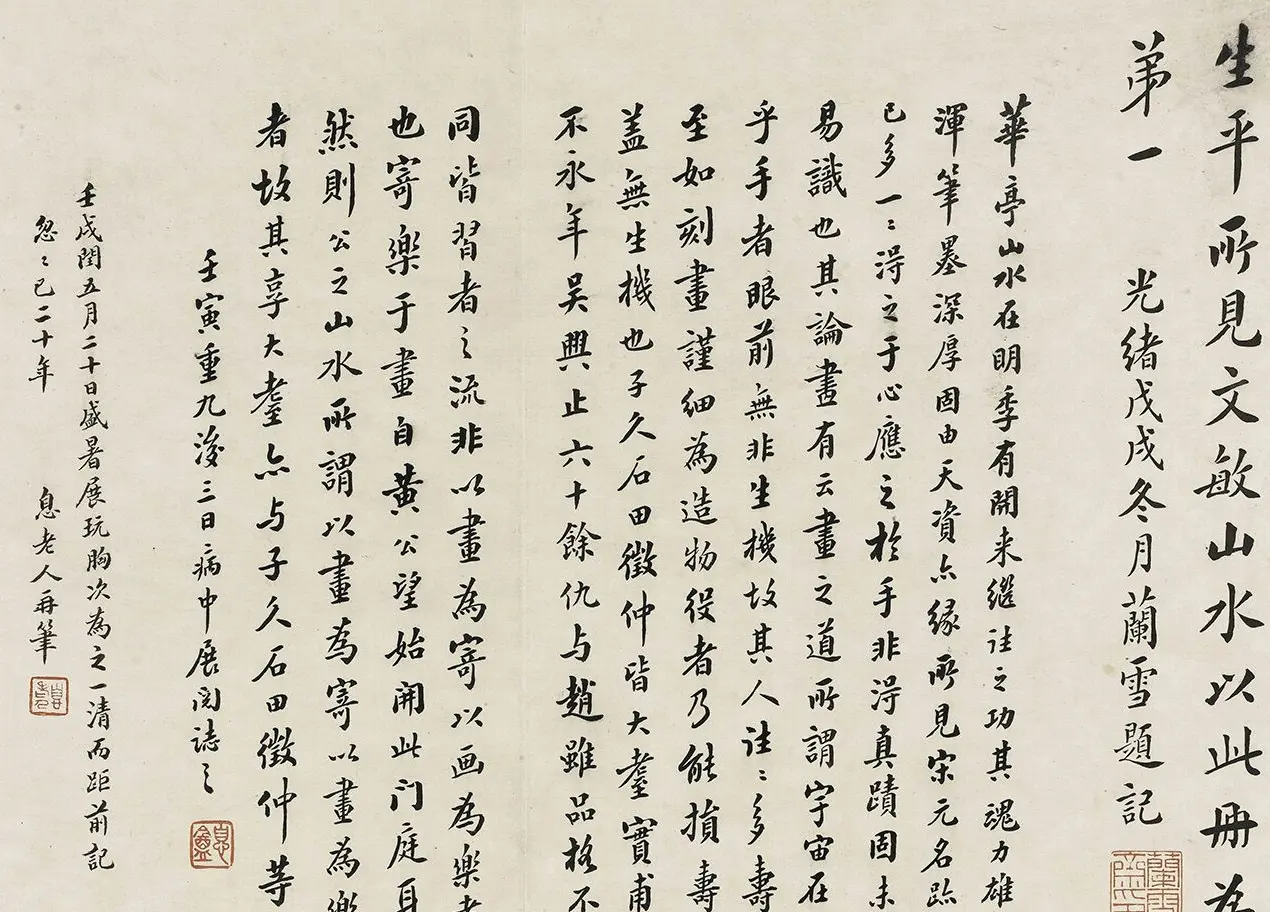 生平所見文敏山水以此冊為
弟一
光緒戊戌冬月蘭雪題記
華亭山水在明季有開来繼往之功其魂力雄
渾筆墨深厚固由天資亦緣所見宋元名跡
已多一〻得之于心應之於手非得真蹟固未
易識也其論畫有云畫之道所謂宇宙在
乎手者眼前無非生機故其人往〻多壽
至如刻畫謹細為造物役者乃能損壽
盖無生機也子久石田徵仲皆大耋實甫
不永年吴興止六十餘仇与趙雖品格不
同皆習者之流非以畫為寄以画為樂者
也寄樂于畫自黄公望始開此门庭耳
然則公之山水所謂以畫為寄以畫為樂
者故其享大耋亦与子久石田徵仲等
壬寅重九後三日病中展閲誌之
壬戌閏五月二十日盛暑展玩胸次為之一清而距前記
忽〻已二十年
息老人再筆